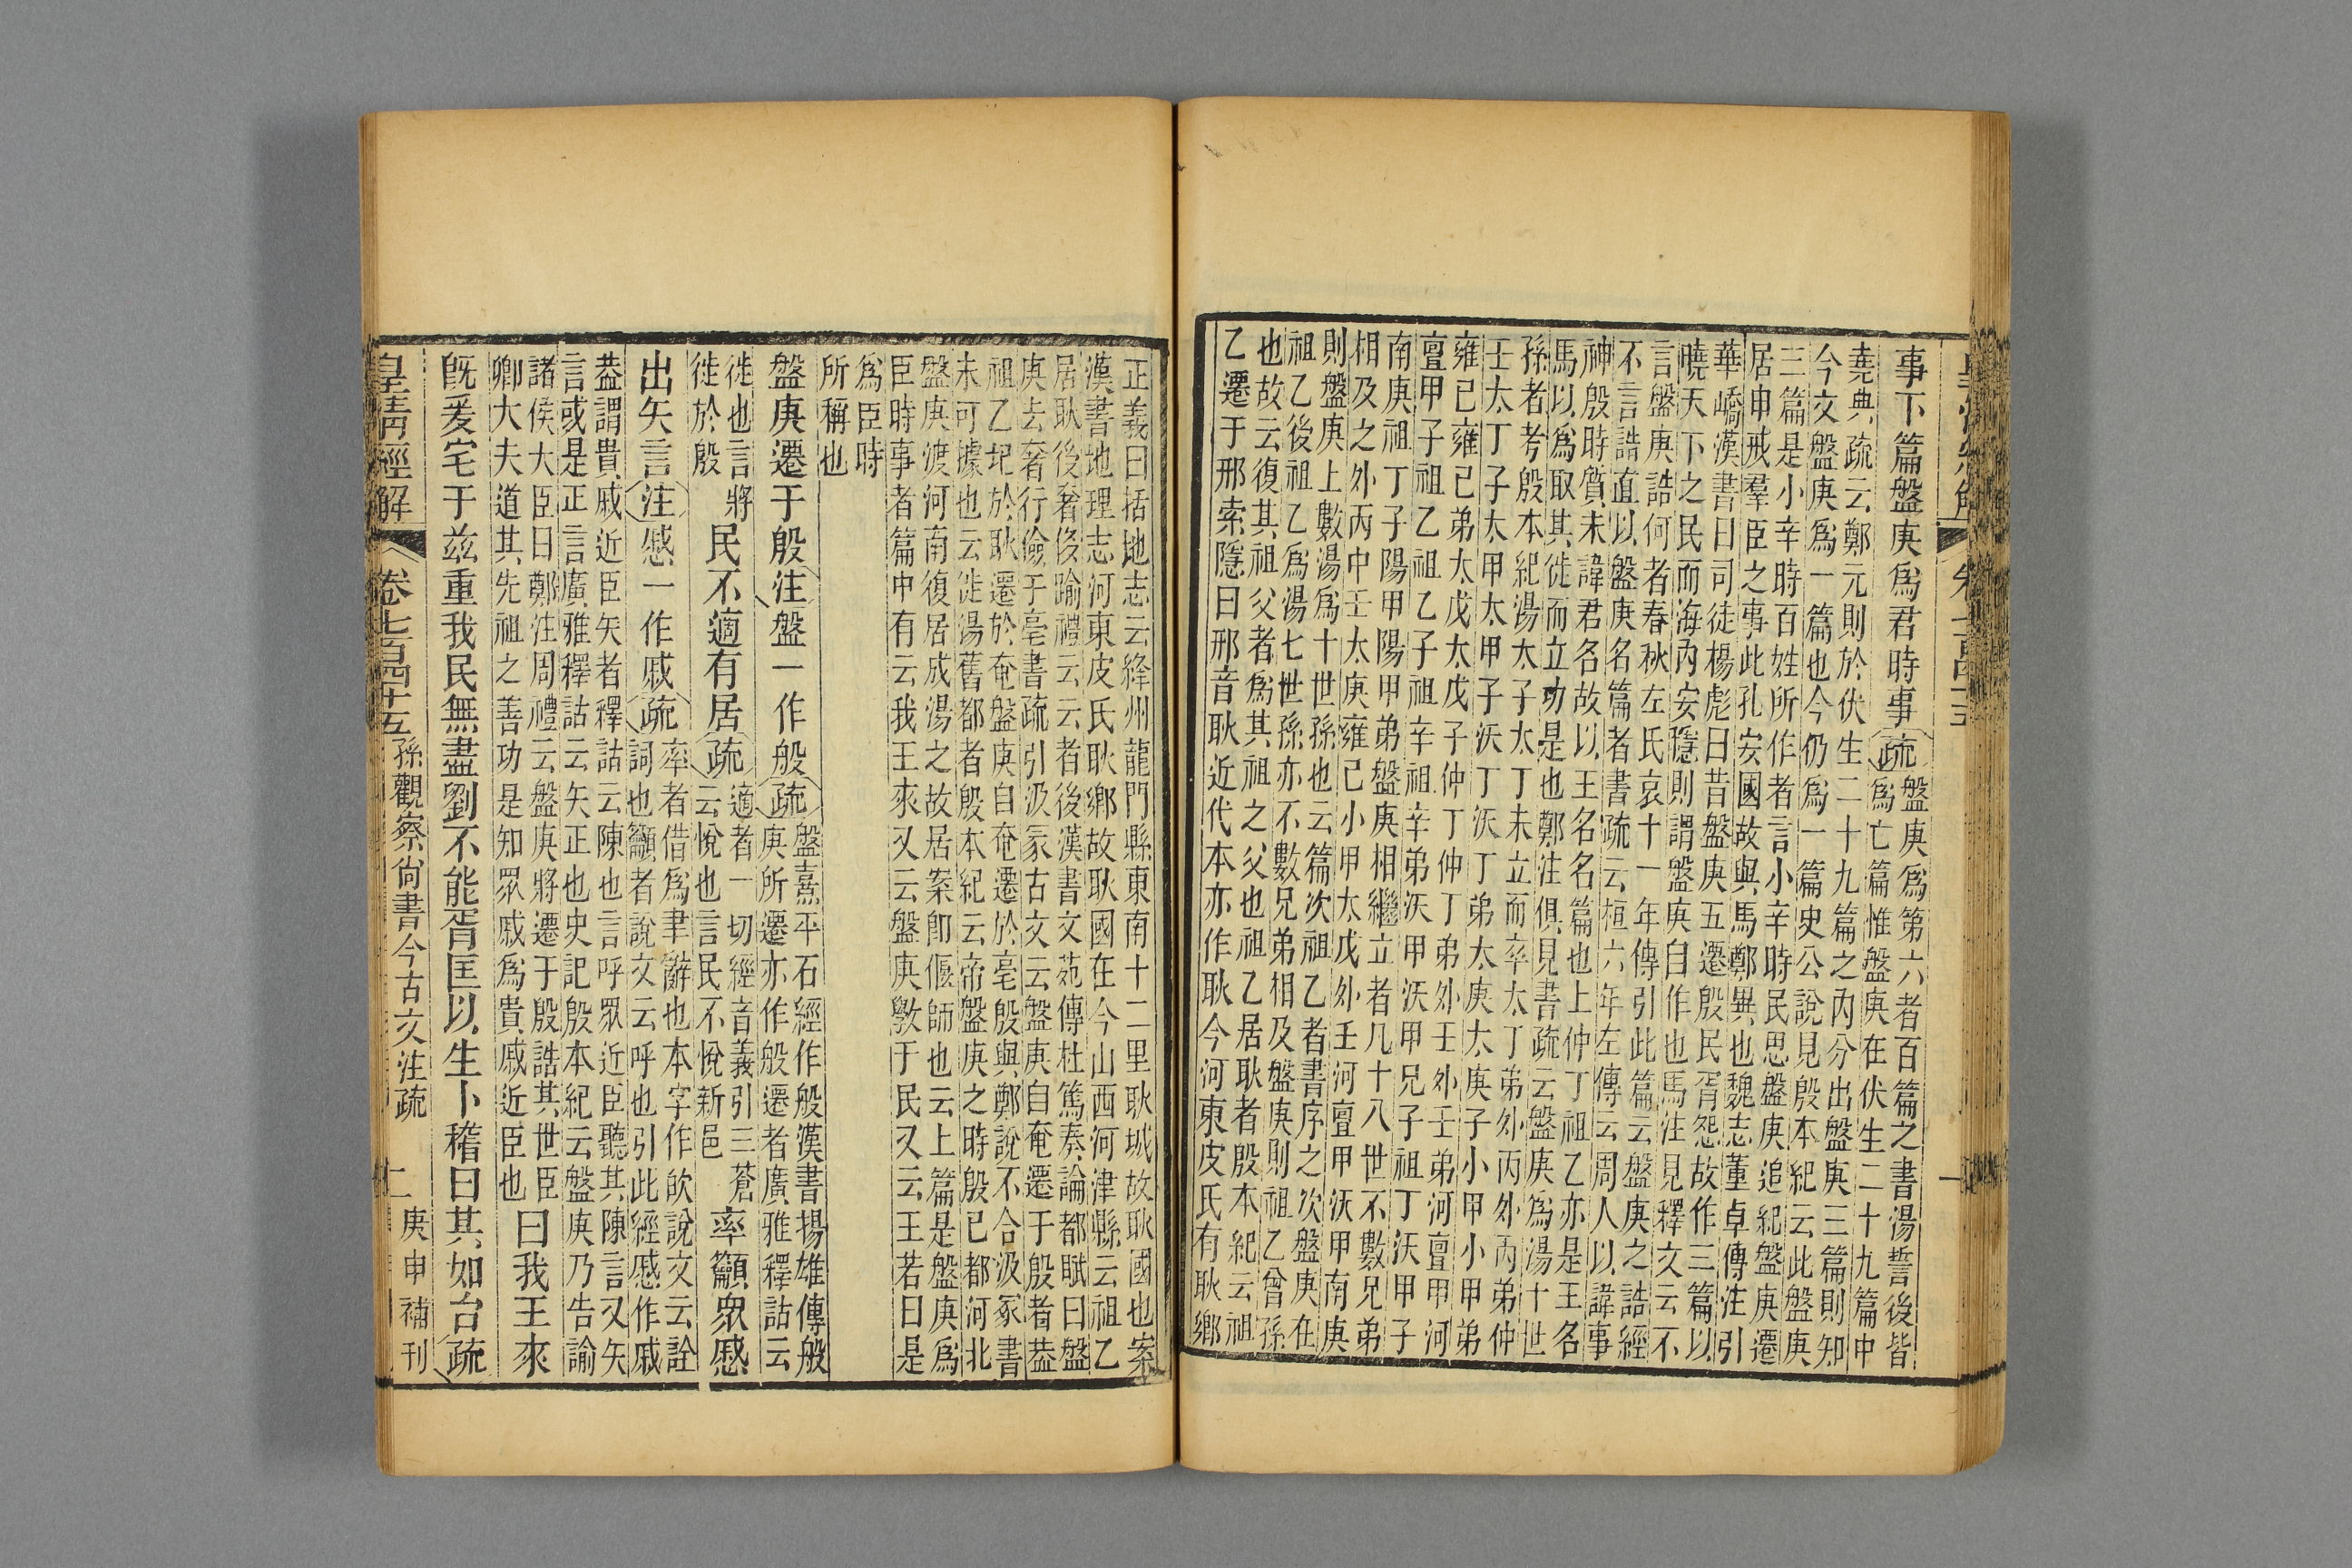 事下篇盤庚爲君時事疏盤庚爲第六者百篇之書湯誓後皆
爲亡篇惟盤庚在伏生二十九篇中
堯典疏云鄭元則於伏生二十九篇之內分出盤庚三篇則知
今文盤庚爲一篇也今仍爲一篇史公說見殷本紀云此盤庚
三篇是小辛時百姓所作者言小辛時民思盤庚追紀盤庚遷
居申戒羣臣之事此孔安國故與馬鄭異也魏志董卓傳注引
華嶠漢書曰司徒楊彪曰昔盤庚五遷殷民胥怨故作三篇以
曉天下之民而海內安隱則謂盤庚自作也馬注見釋文云不
言盤庚誥何者春秋左氏哀十一年傳引此篇云盤庚之誥經
不言誥直以盤庚名篇者書疏云桓六年左傳云周人以諱事
神殷時質未諱君名故以王名名篇也上仲丁祖乙亦是王名
馬以爲取其徙而立功是也鄭注俱見書疏云盤庚爲湯十世
孫者考殷本紀湯太子太丁未立而卒太丁弟外丙外丙弟仲
壬太丁子太甲太甲子沃丁沃丁弟太庚太庚子小甲小甲弟
雍己雍己弟太戊太戊子仲丁仲丁弟外壬外壬弟河亶甲河
亶甲子祖乙祖乙子祖辛祖辛弟沃甲沃甲兄子祖丁沃甲子
南庚祖丁子陽甲陽甲弟盤庚相繼立者凡十八世不數兄弟
相及之外丙中壬太庚雍己小甲太戊外壬河亶甲沃甲南庚
則盤庚上數湯爲十世孫也云篇次祖乙者書序之次盤庚在
祖乙後祖乙爲湯七世孫亦不數兄弟相及盤庚則祖乙曾孫
也故云復其祖父者爲其祖之父也祖乙居耿者殷本紀云祖
乙遷于邢索隱曰邢音耿近代本亦作耿今河東皮氏有耿鄉
正義曰括地志云絳州龍門縣東南十二里耿城故耿國也案
漢書地理志河東皮氏耿鄉故耿國在今山西河津縣云祖乙
居耿後奢侈踰禮云云者後漢書文苑傳杜篤奏論都賦曰盤
庚去奢行儉于亳書疏引汲冢古文云盤庚自奄遷于殷者葢
祖乙圯於耿遷於奄盤庚自奄遷於亳殷與鄭說不合汲冢書
未可據也云徙湯舊都者殷本紀云帝盤庚之時殷已都河北
盤庚渡河南復居成湯之故居案卽偃師也云上篇是盤庚爲
臣時事者篇中有云我王來又云盤庚斆于民又云王若曰是
爲臣時
所稱也
盤庚遷于殷注盤一作般疏盤熹平石經作般漢書揚雄傳般
庚所遷亦作般遷者廣雅釋詁云
徙也言將
徙於殷
民不適有居疏適者一切經音義引三蒼
云悅也言民不悅新邑
率籲眾慼
出矢言注慼一作戚疏率者借爲聿辭也本字作欥說文云詮
詞也籲者說文云呼也引此經慼作戚
葢謂貴戚近臣矢者釋詁云陳也言呼眾近臣聽其陳言又矢
言或是正言廣雅釋詁云矢正也史記殷本紀云盤庚乃告諭
諸侯大臣曰鄭注周禮云盤庚將遷于殷誥其世臣
卿大夫道其先祖之善功是知眾戚爲貴戚近臣也
曰我王來
旣爰宅于兹重我民無盡劉不能胥匡以生卜稽曰其如台疏
皇清經解 卷七百四十五 孫觀察尙書今古文注疏 二 庚申補刊